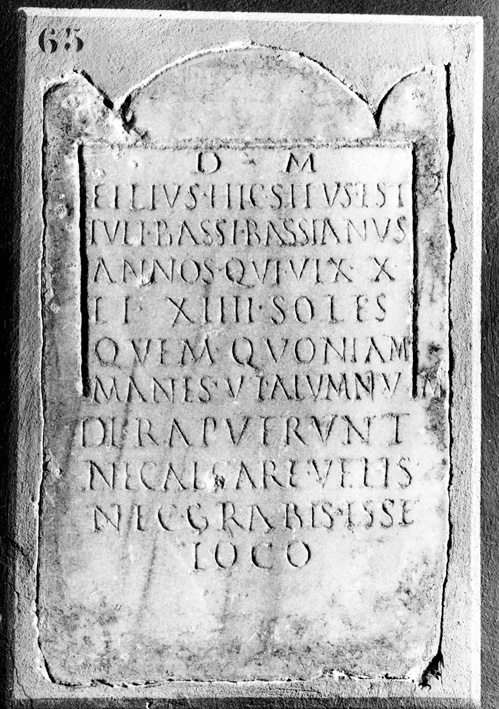 65
D M
FILIVS·HIC·SITVS·EST
IVLI·BASSI·BASSIANVS
ANNOS·QVI·VIX·X
ET·XIIII·SOLES
QVEM·QVONIAM
MANES·VTALVMNVM
DERAPVERVNT
NECALCARE·VELIS
NECGRABIS·ESSE
LOCO